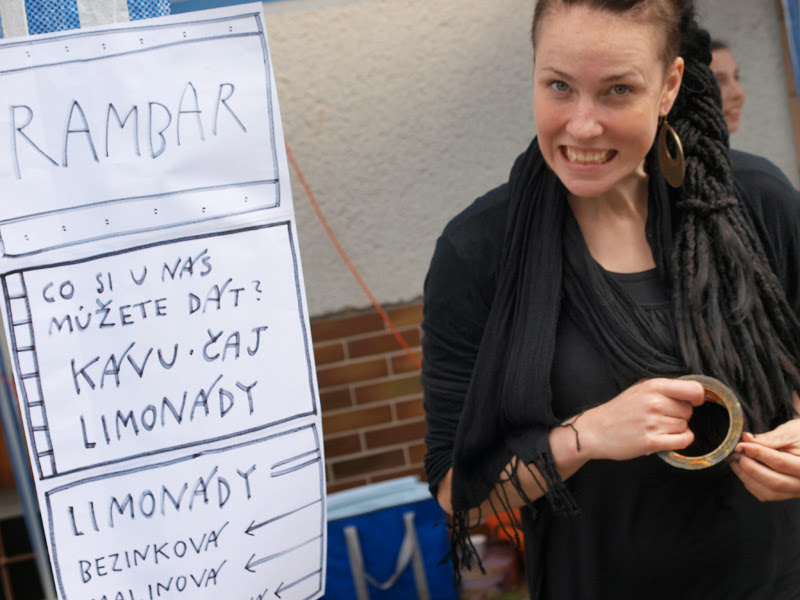 RAMBAR
CO SI U NÁS
MŮŽETE DÁT?
KÁVU·ČAJ
LIMONÁDY
LIMONÁDY
BEZINKOVÁ
MALINOVÁ